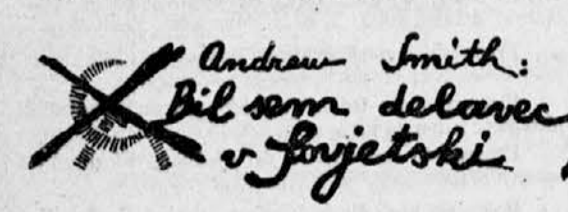 Andrew Smith:
Bil sem delavec
v Sovjetski